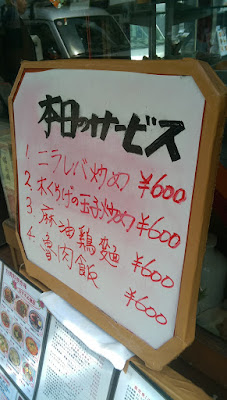 本日のサービス
1. ニラレバ炒め ¥600
2. 木くらげの玉子炒め ¥600
3. 麻油鶏麺 ¥600
4. 魯肉飯 ¥600